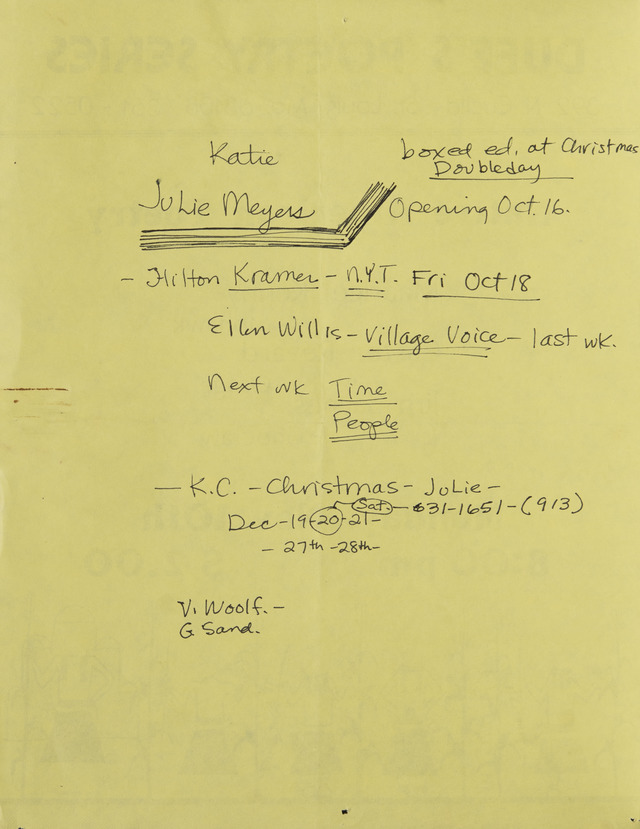 Katie
boxed ed. at Christmas
Doubleday
Julie Meyers
Opening Oct. 16.
- Hilton Kramer - N.Y.T. Fri Oct 18
Ellen Willis - Village Voice - last wk.
Next wk Time
People
- K.C. - Christmas - Julie -
Sat. - 631-1651 - (913)
Dec - 19 - 20 - 21 -
- 27th - 28th -
V. Woolf. -
G. Sand.